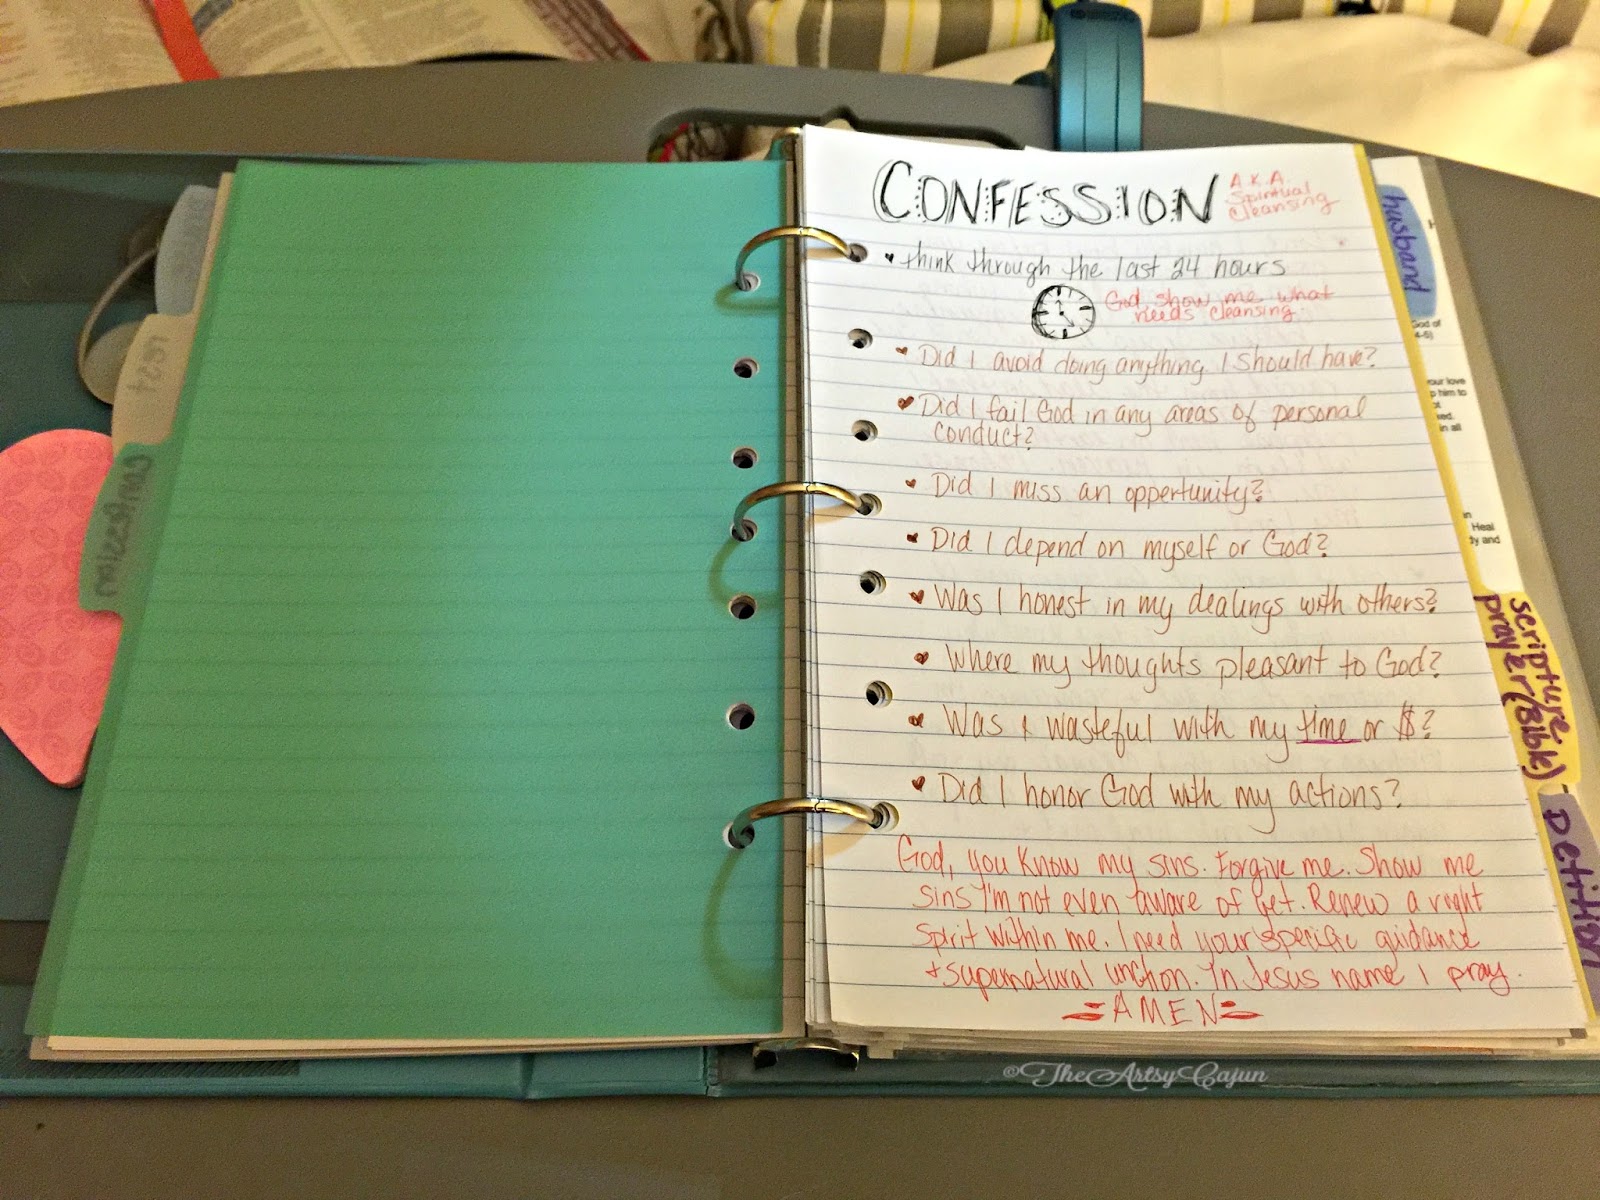 CONFESSION
A.K.A.
Spiritual
Cleansing
think through the last 24 hours
God, show me what
needs cleansing.
Did I avoid doing anything I should have?
Did I fail God in any areas of personal
conduct?
Did I miss an oppertunity?
Did I depend on myself or God?
Was I honest in my dealings with others?
Where my thoughts pleasant to God?
Was I wasteful with my time or $?
Did I honor God with my actions?
God, you know my sins. Forgive me. Show me
sins I'm not even aware of yet. Renew a right
spirit within me. I need your specific guidance
+ supernatural unction. In Jesus name I pray.
=AMEN=
husband
God of
4-5)
our love
him to
in all
Heal
and
scripture
prayer (Bible)
PETITION
confession
©TheArtsyCajun